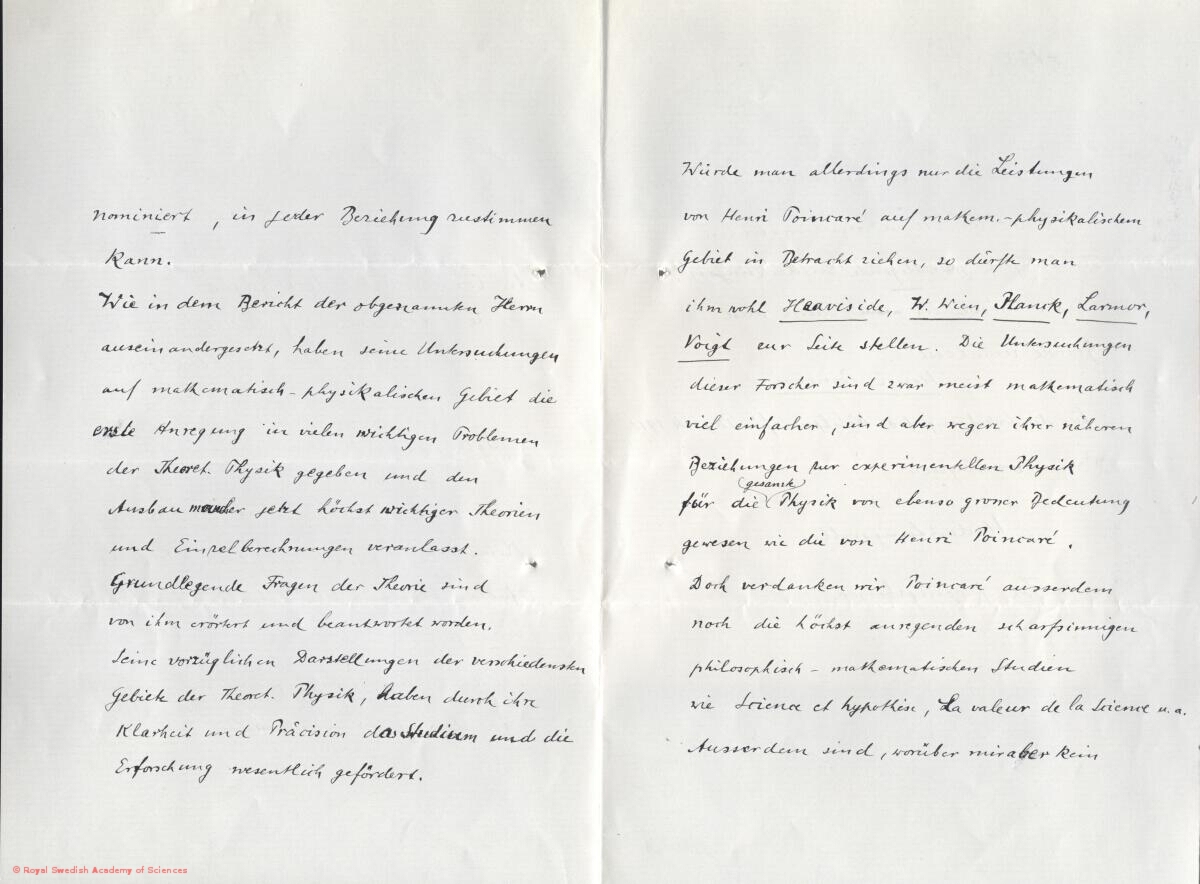 nominiert, in jeder Beziehung zustimmen
kann.
Wie in dem Bericht der obgenannten Herrn
auseinandergesetzt, haben seine Untersuchungen
auf mathematisch-physikalischen Gebiet die
erste Anregung in vielen wichtigen Problemen
der Theoret. Physik gegeben und den
Ausbau mancher jetzt höchst wichtiger Theorien
und Einzelberechnungen veranlasst.
Grundlegende Fragen der Theorie sind
von ihm erörtert und beantwortet worden.
Seine vorzüglichen Darstellungen der verschiedensten
Gebiete der Theoret. Physik, haben durch ihre
Klarheit und Präcision das Studium und die
Erforschung wesentlich gefördert.
Würde man allerdings nur die Leistungen
von Henri Poincaré auf mathem.-physikalischem
Gebiet in Betracht ziehen, so dürfte man
ihm wohl Heaviside, W. Wien, Planck, Larmor,
Voigt zur Seite stellen. Die Untersuchungen
dieser Forscher sind zwar meist mathematisch
viel einfacher, sind aber wegen ihrer näheren
Beziehungen zur experimentellen Physik
für die gesamte Physik von ebenso grosser Bedeutung
gewesen wie die von Henri Poincaré.
Doch verdanken wir Poincaré ausserdem
noch die höchst anregenden scharfsinnigen
philosophisch-mathematischen Studien
wie Science et hypothèse, La valeur de la Science u.a.
Ausserdem sind, worüber mir aber kein
© Royal Swedish Academy of Sciences